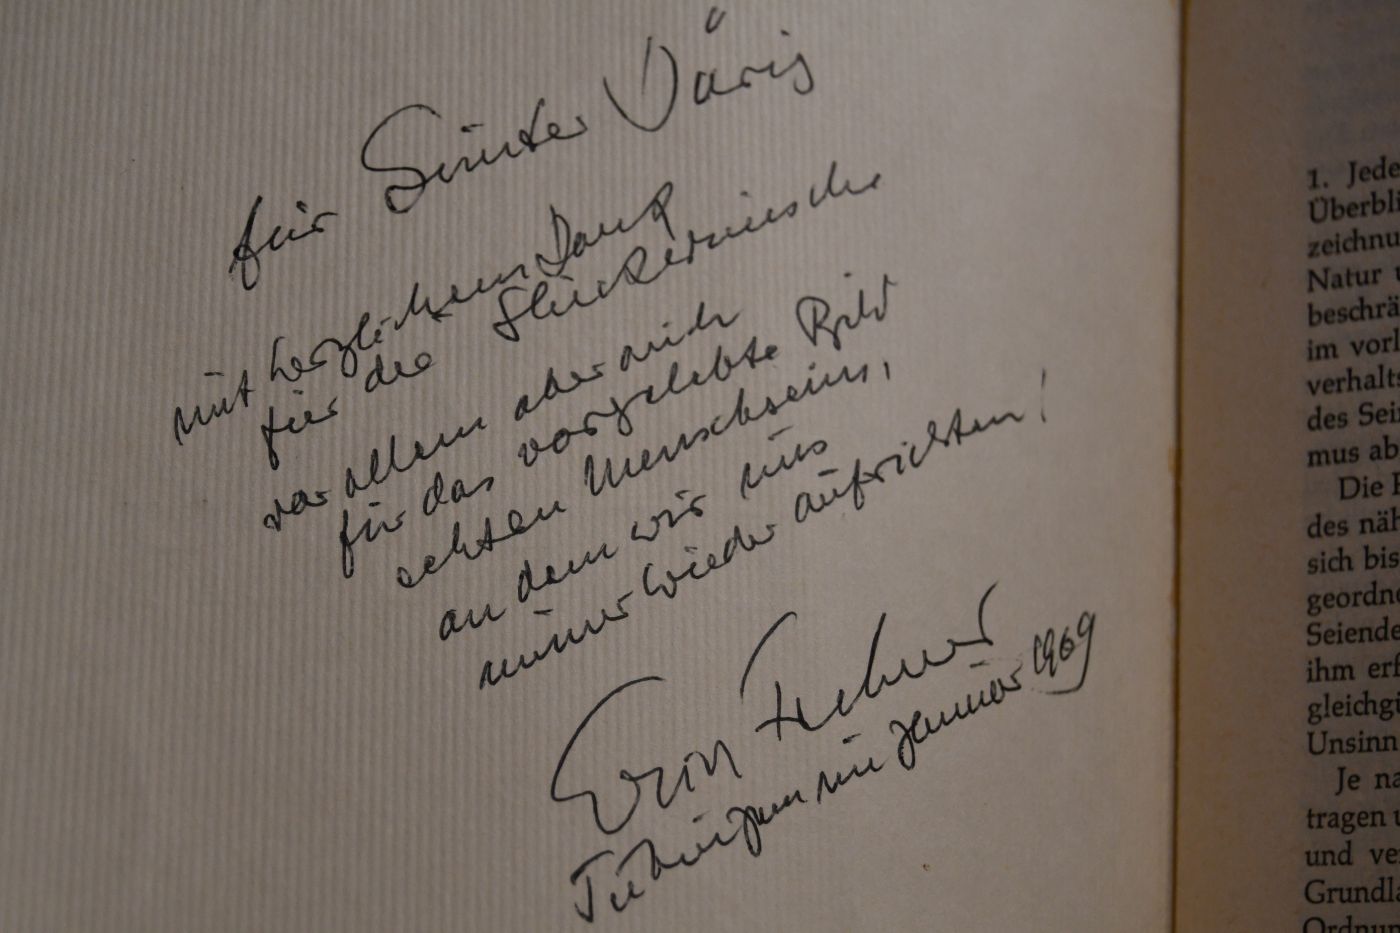 für Günter Dürig
mit herzlichem Dank
für die Glückwünsche
vor allem aber auch
für das vorgelebte Bild
echten Menschseins,
an dem wir uns
immer wieder aufrichten!
Erwin Fechner
Tübingen im Januar 1969
1. Jede
Überbli
zeichnu
Natur u
beschrä
im vorl
verhalts
des Sein
mus ab
Die
des näh
sich bis
geordne
Seiende
ihm erf
gleichgü
Unsinn
Je na
tragen u
und ve
Grundla
Ordnun